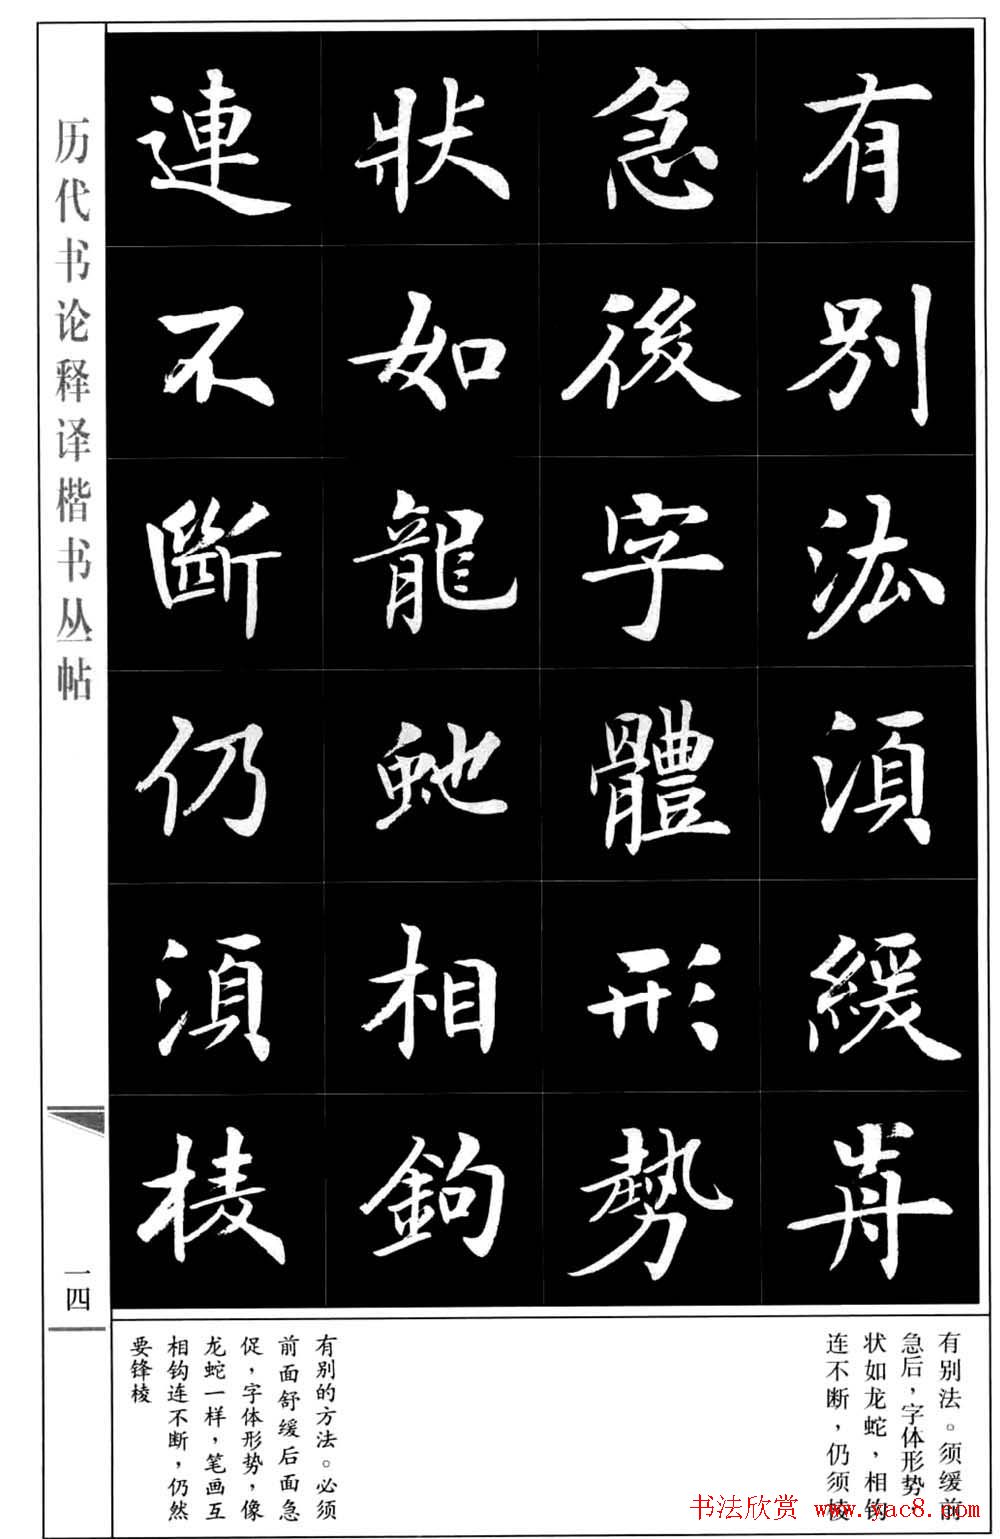 有别法須緩歬
急後字體形勢
狀如龍虵相鉤
連不斷仍須棱
历代书论释译楷书丛帖
一四
有别法。须缓前
急后，字体形势，
状如龙蛇，相钩
连不断，仍须棱
有别的方法。必须
前面舒缓后面急
促，字体形势，像
龙蛇一样，笔画互
相钩连不断，仍然
要锋棱
书法欣赏 www.yac8.com